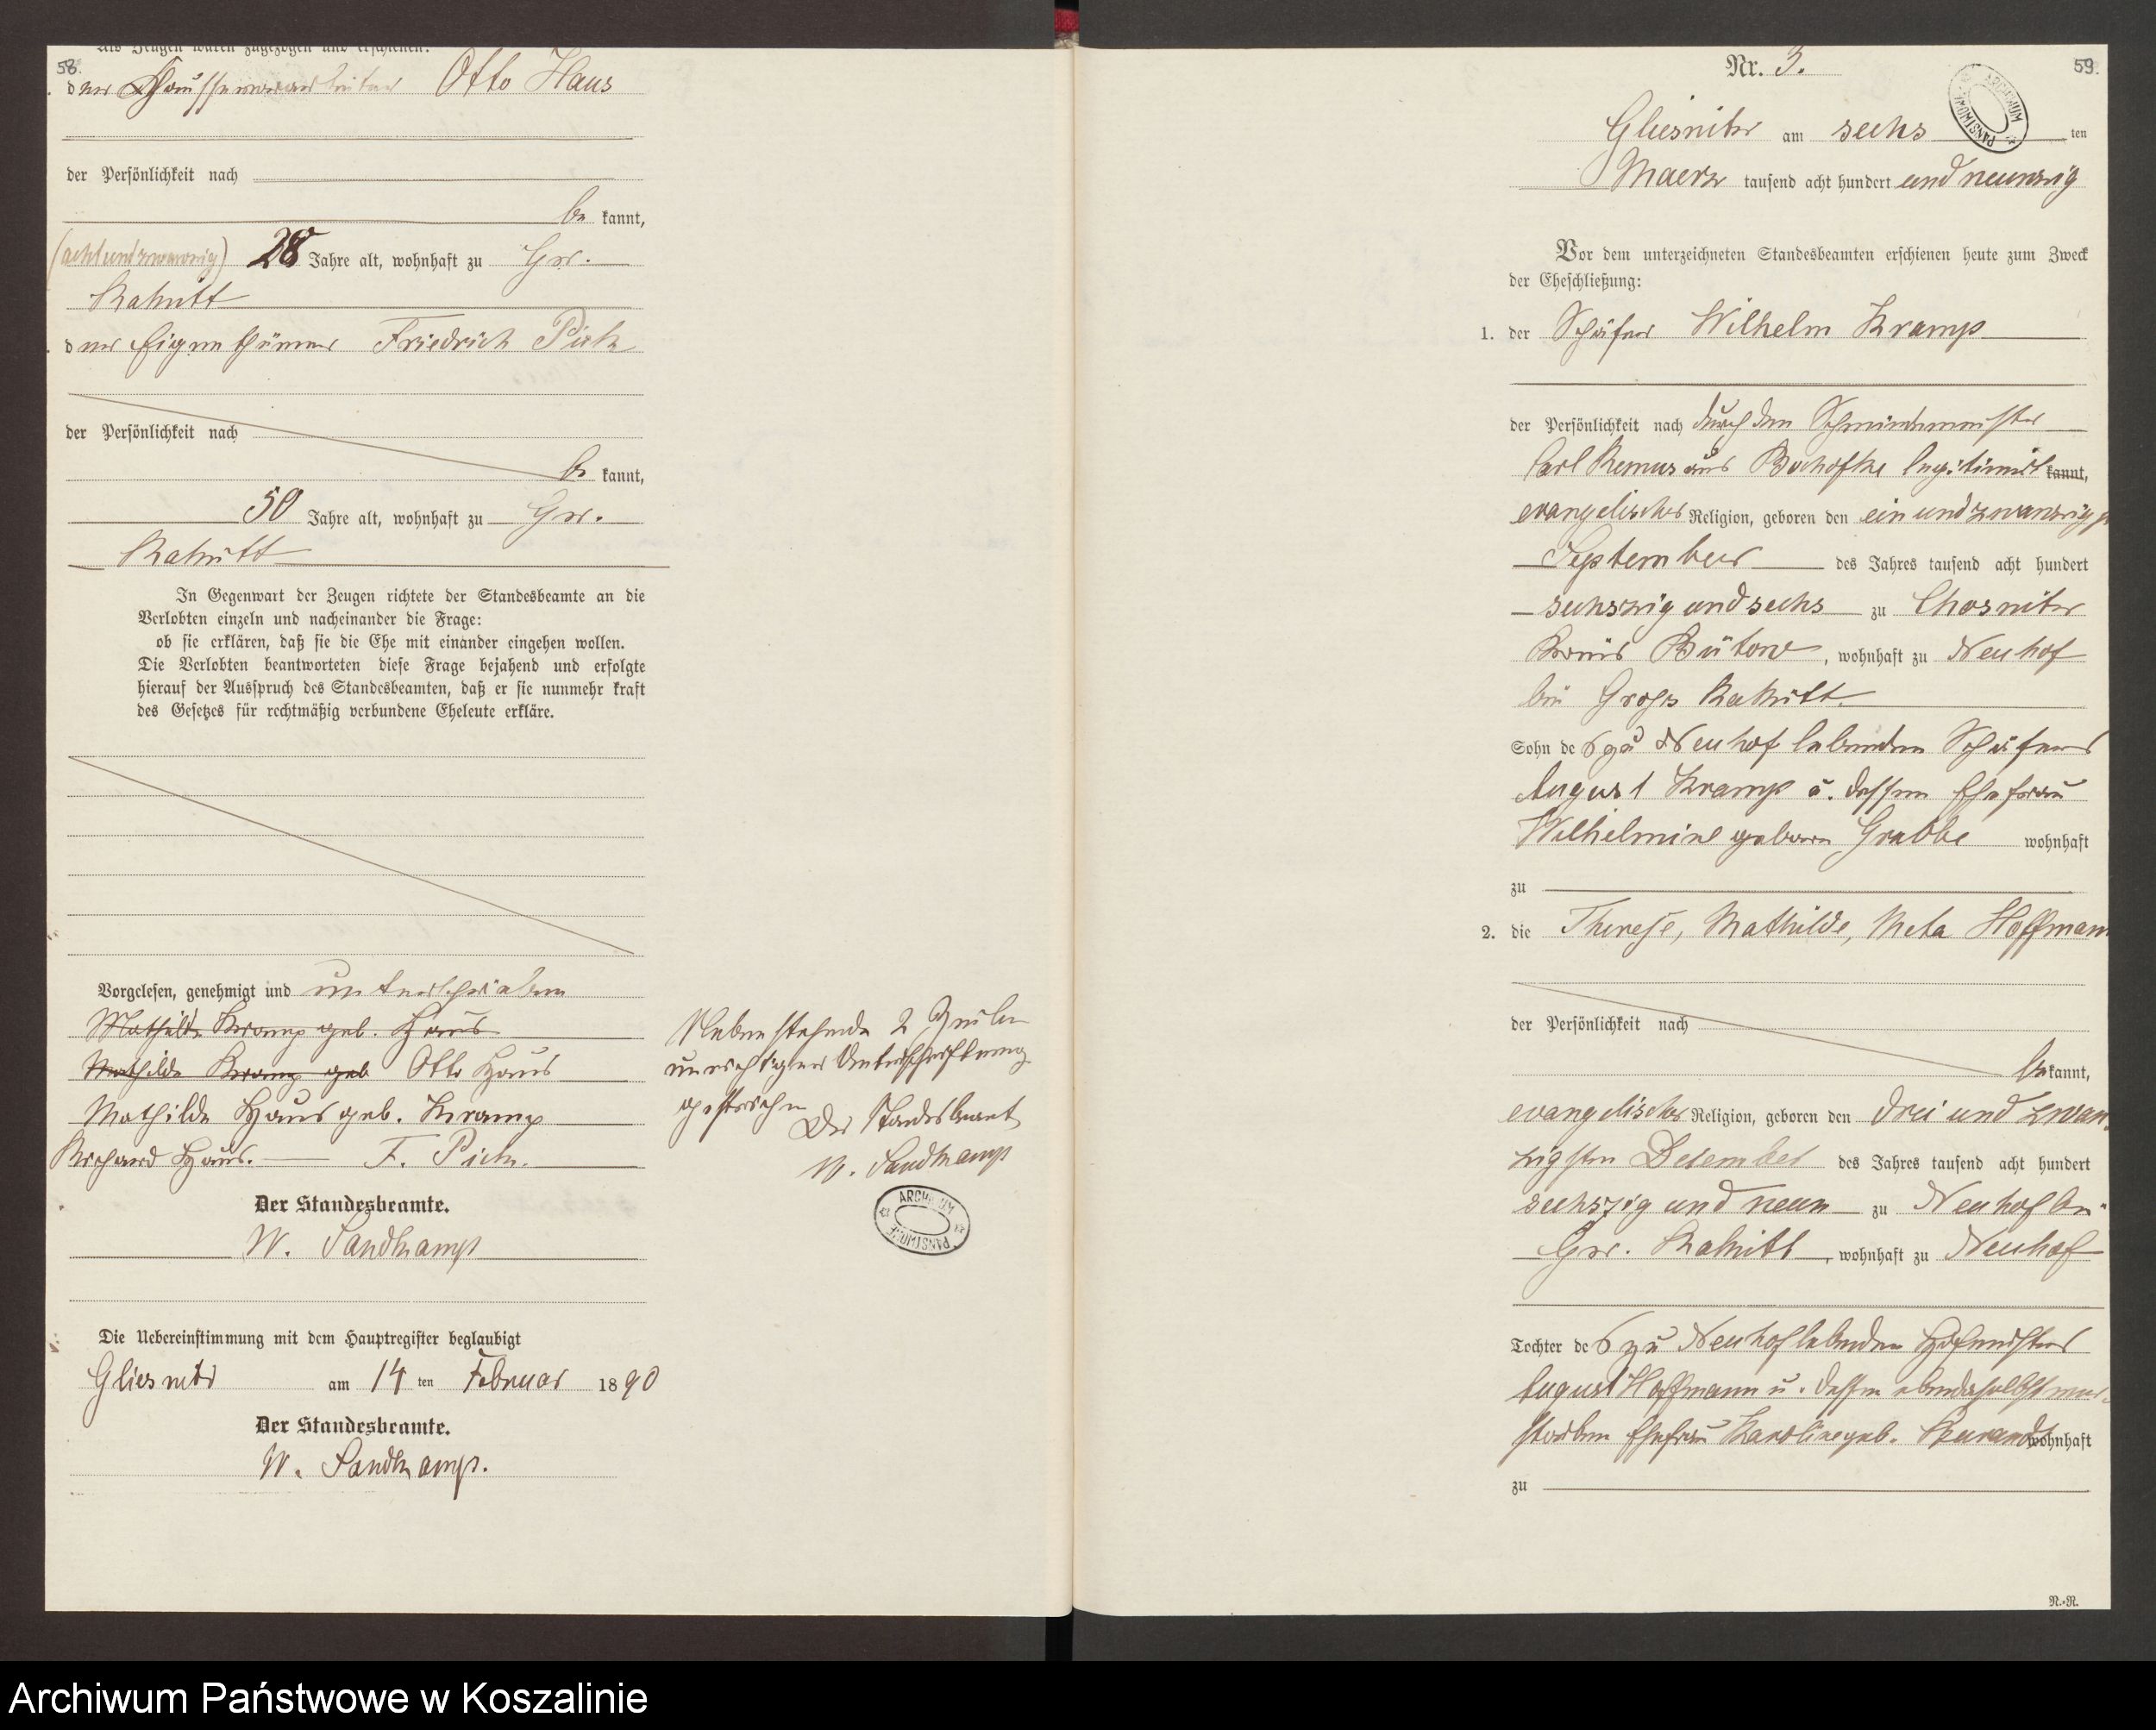 58.
Als Zeugen waren zugezogen und erschienen:
der Chausseearbeiter Otto Haus
der Persönlichkeit nach
be kannt,
(achtundzwanzig) 28 Jahre alt, wohnhaft zu Gr.
Rakitt
der Eigenthümer Friedrich Pick
der Persönlichkeit nach
be kannt,
50 Jahre alt, wohnhaft zu Gr.
Rakitt
In Gegenwart der Zeugen richtete der Standesbeamte an die
Verlobten einzeln und nacheinander die Frage:
ob sie erklären, daß sie die Ehe mit einander eingehen wollen.
Die Verlobten beantworteten diese Frage bejahend und erfolgte
hierauf der Ausspruch des Standesbeamten, daß er sie nunmehr kraft
des Gesetzes für rechtmäßig verbundene Eheleute erkläre.
Vorgelesen, genehmigt und unterschrieben
Mathilde Kramp geb. Haus
Mathilde Kramp geb Otto Haus
Mathilde Haus geb. Kramp
Richard Haus. F. Pick.
Der Standesbeamte.
W. Sandkamp
Die Uebereinstimmung mit dem Hauptregister beglaubigt
Gliesnitz am 14 ten Februar 1890
Der Standesbeamte.
W. Sandkamp.
Nebenstehende 2 Zeilen
unrichtiger Unterschriftung
gestrichen
Der Standesbeamt
W. Sandkamp
ARCHIWUM PAŃSTWOWE
Nr. 3.
59.
ARCHIWUM PAŃSTWOWE
Gliesnitz am sechs ten
Maerz tausend acht hundert und neunzig
Vor dem unterzeichneten Standesbeamten erschienen heute zum Zweck
der Eheschließung:
1. der Schäfer Wilhelm Kramp
der Persönlichkeit nach durch den Schmiedemeister
Carl Remus aus Bochofke legitimirt kannt,
evangelischer Religion, geboren den ein und zwanzig
September des Jahres tausend acht hundert
sechszig und sechs zu Chosnitz
Kreis Bütow, wohnhaft zu Neuhof
bei Gross Rakitt
Sohn des zu Neuhof lebenden Schäfers
August Kramp u. dessen Ehefrau
Wilhelmine geboren Grabbe wohnhaft
zu
2. die Therese, Mathilde, Meta Hoffmann
der Persönlichkeit nach
be kannt,
evangelischer Religion, geboren den drei und zwan
zigsten Dezember des Jahres tausend acht hundert
sechszig und neun zu Neuhof bei
Gr. Rakitt, wohnhaft zu Neuhof
Tochter des zu Neuhof lebenden Hofmeisters
August Hoffmann u. dessen ebendaselbst ver-
storben Ehefrau Karoline geb. wohnhaft
zu
N.-N.
Archiwum Państwowe w Koszalinie